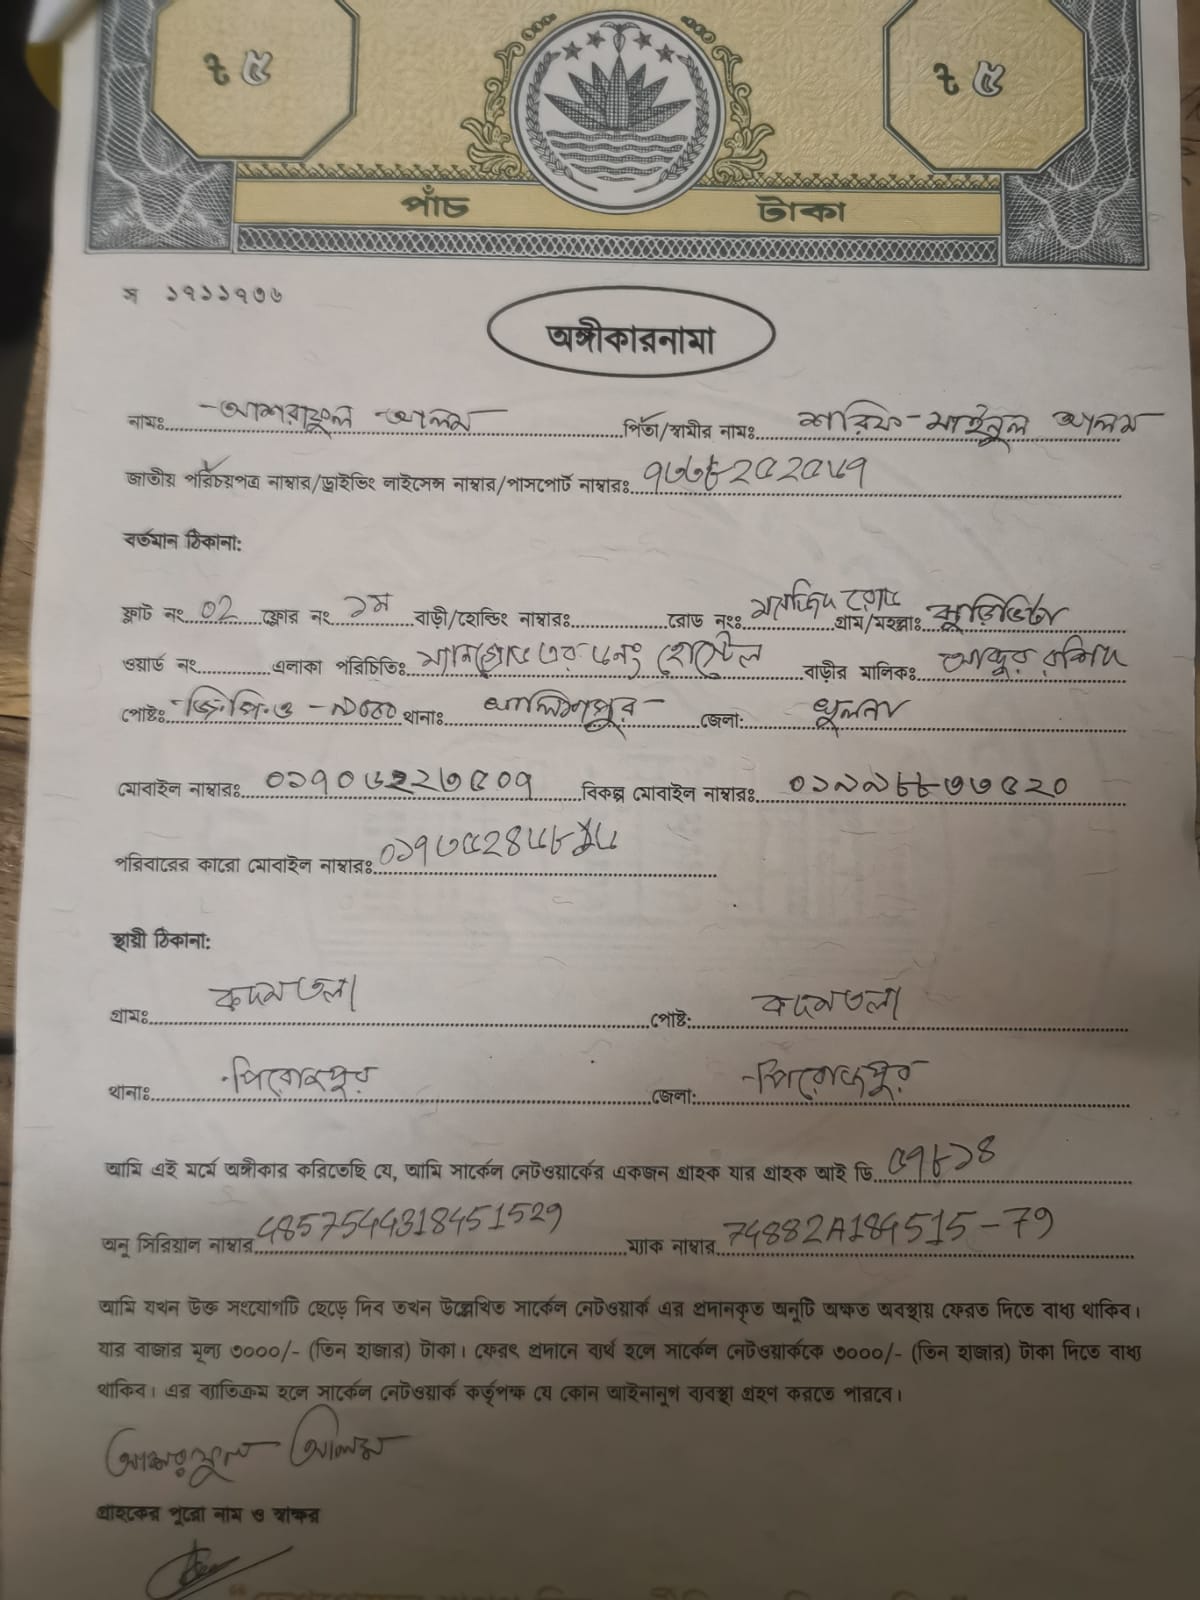 ৳ ৫ ৳ ৫
পাঁচ টাকা
স ১৭১১৭৩৬
অঙ্গীকারনামা
নামঃ আশরাফুল আলম পিতা/স্বামীর নামঃ শরিফ মাইনুল আলম
জাতীয় পরিচয়পত্র নাম্বার/ড্রাইভিং লাইসেন্স নাম্বার/পাসপোর্ট নাম্বারঃ ৭৩৩৮২৫২৫৮৭
বর্তমান ঠিকানা:
ফ্লাট নং 02 ফ্লোর নং ১ম বাড়ী/হোল্ডিং নাম্বারঃ রোড নংঃ মসজিদ রোড গ্রাম/মহল্লাঃ মুড়িভিটা
ওয়ার্ড নং এলাকা পরিচিতিঃ এর হোস্টেল বাড়ীর মালিকঃ আব্দুর রশিদ
পোষ্টঃ জি.পি.ও - ৯০০০ থানাঃ খালিশপুর জেলা: খুলনা
মোবাইল নাম্বারঃ বিকল্প মোবাইল নাম্বারঃ ০১৯৯৮৮৩৩৫২০
পরিবারের কারো মোবাইল নাম্বারঃ
স্থায়ী ঠিকানা:
গ্রামঃ কদমতলা পোষ্ট: কদমতলা
থানাঃ পিরোজপুর জেলা: পিরোজপুর
আমি এই মর্মে অঙ্গীকার করিতেছি যে, আমি সার্কেল নেটওয়ার্কের একজন গ্রাহক যার গ্রাহক আই ডি ৫৭৮১৪
অনু সিরিয়াল নাম্বার 4857544318451529 ম্যাক নাম্বার 74882A184515-79
আমি যখন উক্ত সংযোগটি ছেড়ে দিব তখন উল্লেখিত সার্কেল নেটওয়ার্ক এর প্রদানকৃত অনুটি অক্ষত অবস্থায় ফেরত দিতে বাধ্য থাকিব।
যার বাজার মূল্য ৩০০০/- (তিন হাজার) টাকা। ফেরৎ প্রদানে ব্যর্থ হলে সার্কেল নেটওয়ার্ককে ৩০০০/- (তিন হাজার) টাকা দিতে বাধ্য
থাকিব। এর ব্যাতিক্রম হলে সার্কেল নেটওয়ার্ক কর্তৃপক্ষ যে কোন আইনানুগ ব্যবস্থা গ্রহণ করতে পারবে।
আশরাফুল আলম
গ্রাহকের পুরো নাম ও স্বাক্ষর